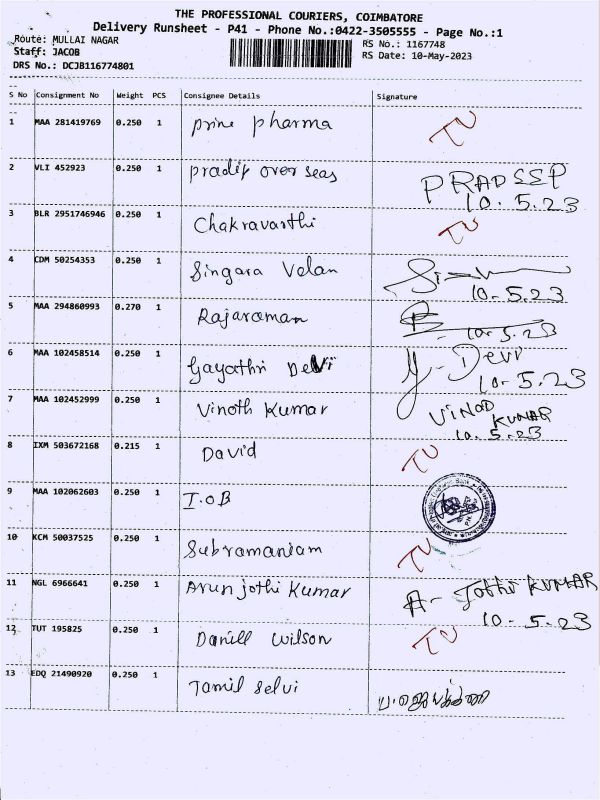 THE PROFESSIONAL COURIERS, COIMBATORE
Delivery Runsheet - P41 - Phone No.:0422-3505555 - Page No.:1
Route: MULLAI NAGAR
RS No.: 1167748
Staff: JACOB
RS Date: 10-May-2023
DRS No.: DCJB116774801
S No Consignment No Weight PCS Consignee Details Signature
1 MAA 281419769 0.250 1 prine pharma TU
2 VLI 452923 0.250 1 pradip over seas PRADSSP
10.5.23
3 BLR 2951746946 0.250 1 Chakravarthi TU
4 CDM 50254353 0.250 1 Singara Velan
10-5.23
5 MAA 294860993 0.270 1 Rajaraman
10-5.23
6 MAA 102458514 0.250 1 Gayathri Devi y-Devi
10-5.23
7 MAA 102452999 0.250 1 Vinoth Kumar VINOD
KUNAR
10.5-23
8 IXM 503672168 0.215 1 David TU
9 MAA 102062603 0.250 1 I.O.B
10 KCM 50037525 0.250 1 Subramaniam TU
11 NGL 6966641 0.250 1 Arun jothi Kumar A- Jothi KUMAR
10-5.23
12 TUT 195825 0.250 1 Danill wilson TU
13 EDQ 21490920 0.250 1 Tamil selvi